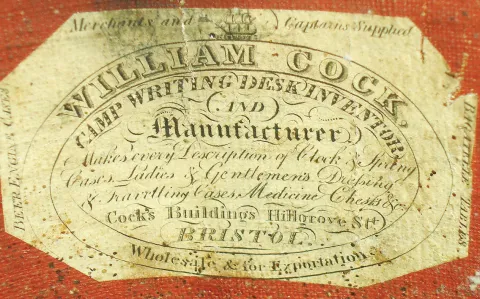 Merchants and Captains Supplied
WILLIAM COCK,
CAMP WRITING DESK INVENTOR,
AND
Manufacturer
Makes every Description of Clock & Spring
Cases, Ladies & Gentlemen's Dressing
& Travelling Cases, Medicine Chests &c.
Cock's Buildings Hillgrove Stt
BRISTOL
Wholesale & for Exportation
BEER ENGINE